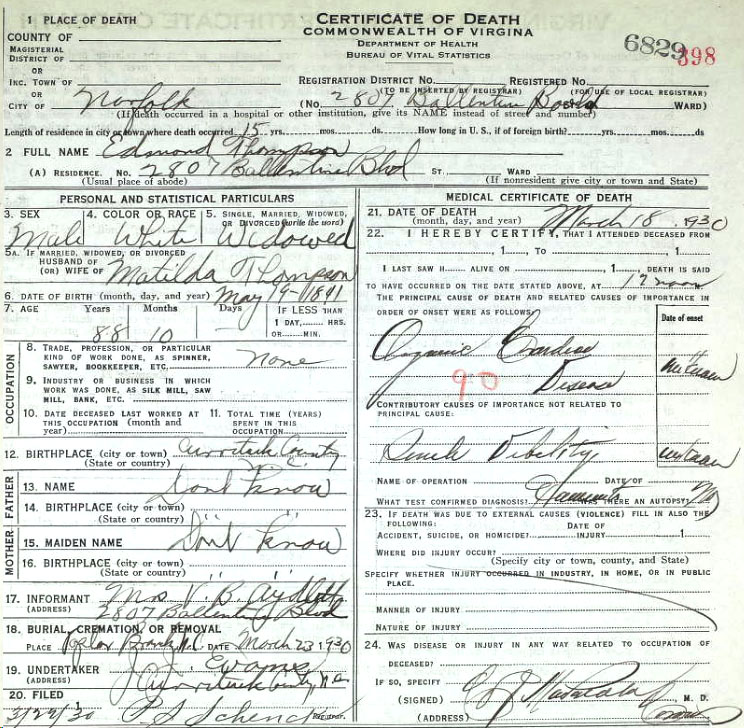 1 PLACE OF DEATH
COUNTY OF
MAGISTERIAL
DISTRICT OF
OR
INC. TOWN OF
OR
CITY OF Norfolk
CERTIFICATE OF DEATH
COMMONWEALTH OF VIRGINIA
DEPARTMENT OF HEALTH
BUREAU OF VITAL STATISTICS
6829 398
REGISTRATION DISTRICT NO. REGISTERED NO.
(TO BE INSERTED BY REGISTRAR) (FOR USE OF LOCAL REGISTRAR)
(No. 2807 Ballentine WARD)
(If death occurred in a hospital or other institution, give its NAME instead of street and number)
Length of residence in city or town where death occurred 15 yrs. mos. ds. How long in U. S., if of foreign birth? yrs. mos. ds
2 FULL NAME Edmond Thompson
(A) RESIDENCE. No. 2807 Ballentine Blvd ST. WARD
(Usual place of abode) (If nonresident give city or town and State)
PERSONAL AND STATISTICAL PARTICULARS
3. SEX 4. COLOR OR RACE 5. SINGLE, MARRIED, WIDOWED,
OR DIVORCED (write the word)
Male White Widowed
5A. IF MARRIED, WIDOWED, OR DIVORCED
HUSBAND OF
(OR) WIFE OF Matilda Thompson
6. DATE OF BIRTH (month, day, and year) May 19-1841
7. AGE Years Months Days IF LESS THAN
1 DAY, HRS.
OR MIN.
88 10
OCCUPATION
8. TRADE, PROFESSION, OR PARTICULAR
KIND OF WORK DONE, AS SPINNER,
SAWYER, BOOKKEEPER, ETC. none
9. INDUSTRY OR BUSINESS IN WHICH
WORK WAS DONE, AS SILK MILL, SAW
MILL, BANK, ETC.
10. DATE DECEASED LAST WORKED AT
THIS OCCUPATION (month and
year)
11. TOTAL TIME (YEARS)
SPENT IN THIS
OCCUPATION
12. BIRTHPLACE (city or town) Currituck County
(State or country) N. C.
FATHER
13. NAME Dont know
14. BIRTHPLACE (city or town) " "
(State or country)
MOTHER
15. MAIDEN NAME Dont know
16. BIRTHPLACE (city or town)
(State or country) " "
17. INFORMANT Mrs V. B. Aydlett
(ADDRESS) 2807 Ballentine Blvd
18. BURIAL, CREMATION, OR REMOVAL
PLACE Poplar Branch N.C. DATE March 23 1930
19. UNDERTAKER
(ADDRESS) Currituck County
20. FILED
3/29/30 Schenck REGISTRAR.
MEDICAL CERTIFICATE OF DEATH
21. DATE OF DEATH
(month, day, and year) March 18, 1930
22. I HEREBY CERTIFY, THAT I ATTENDED DECEASED FROM
, 1 , TO , 1
I LAST SAW H ALIVE ON , 1 , DEATH IS SAID
TO HAVE OCCURRED ON THE DATE STATED ABOVE, AT 12 noon
THE PRINCIPAL CAUSE OF DEATH AND RELATED CAUSES OF IMPORTANCE IN
ORDER OF ONSET WERE AS FOLLOWS:
Date of onset
Organic Cardiac
90 Disease unknown
CONTRIBUTORY CAUSES OF IMPORTANCE NOT RELATED TO
PRINCIPAL CAUSE:
Senile Debility unknown
NAME OF OPERATION DATE OF
WHAT TEST CONFIRMED DIAGNOSIS? WAS THERE AN AUTOPSY? No
23. IF DEATH WAS DUE TO EXTERNAL CAUSES (VIOLENCE) FILL IN ALSO THE
FOLLOWING: DATE OF
ACCIDENT, SUICIDE, OR HOMICIDE? INJURY 1
WHERE DID INJURY OCCUR?
(Specify city or town, county, and State)
SPECIFY WHETHER INJURY OCCURRED IN INDUSTRY, IN HOME, OR IN PUBLIC
PLACE.
MANNER OF INJURY
NATURE OF INJURY
24. WAS DISEASE OR INJURY IN ANY WAY RELATED TO OCCUPATION OF
DECEASED?
IF SO, SPECIFY
(SIGNED) M. D.
(ADDRESS) Coroner